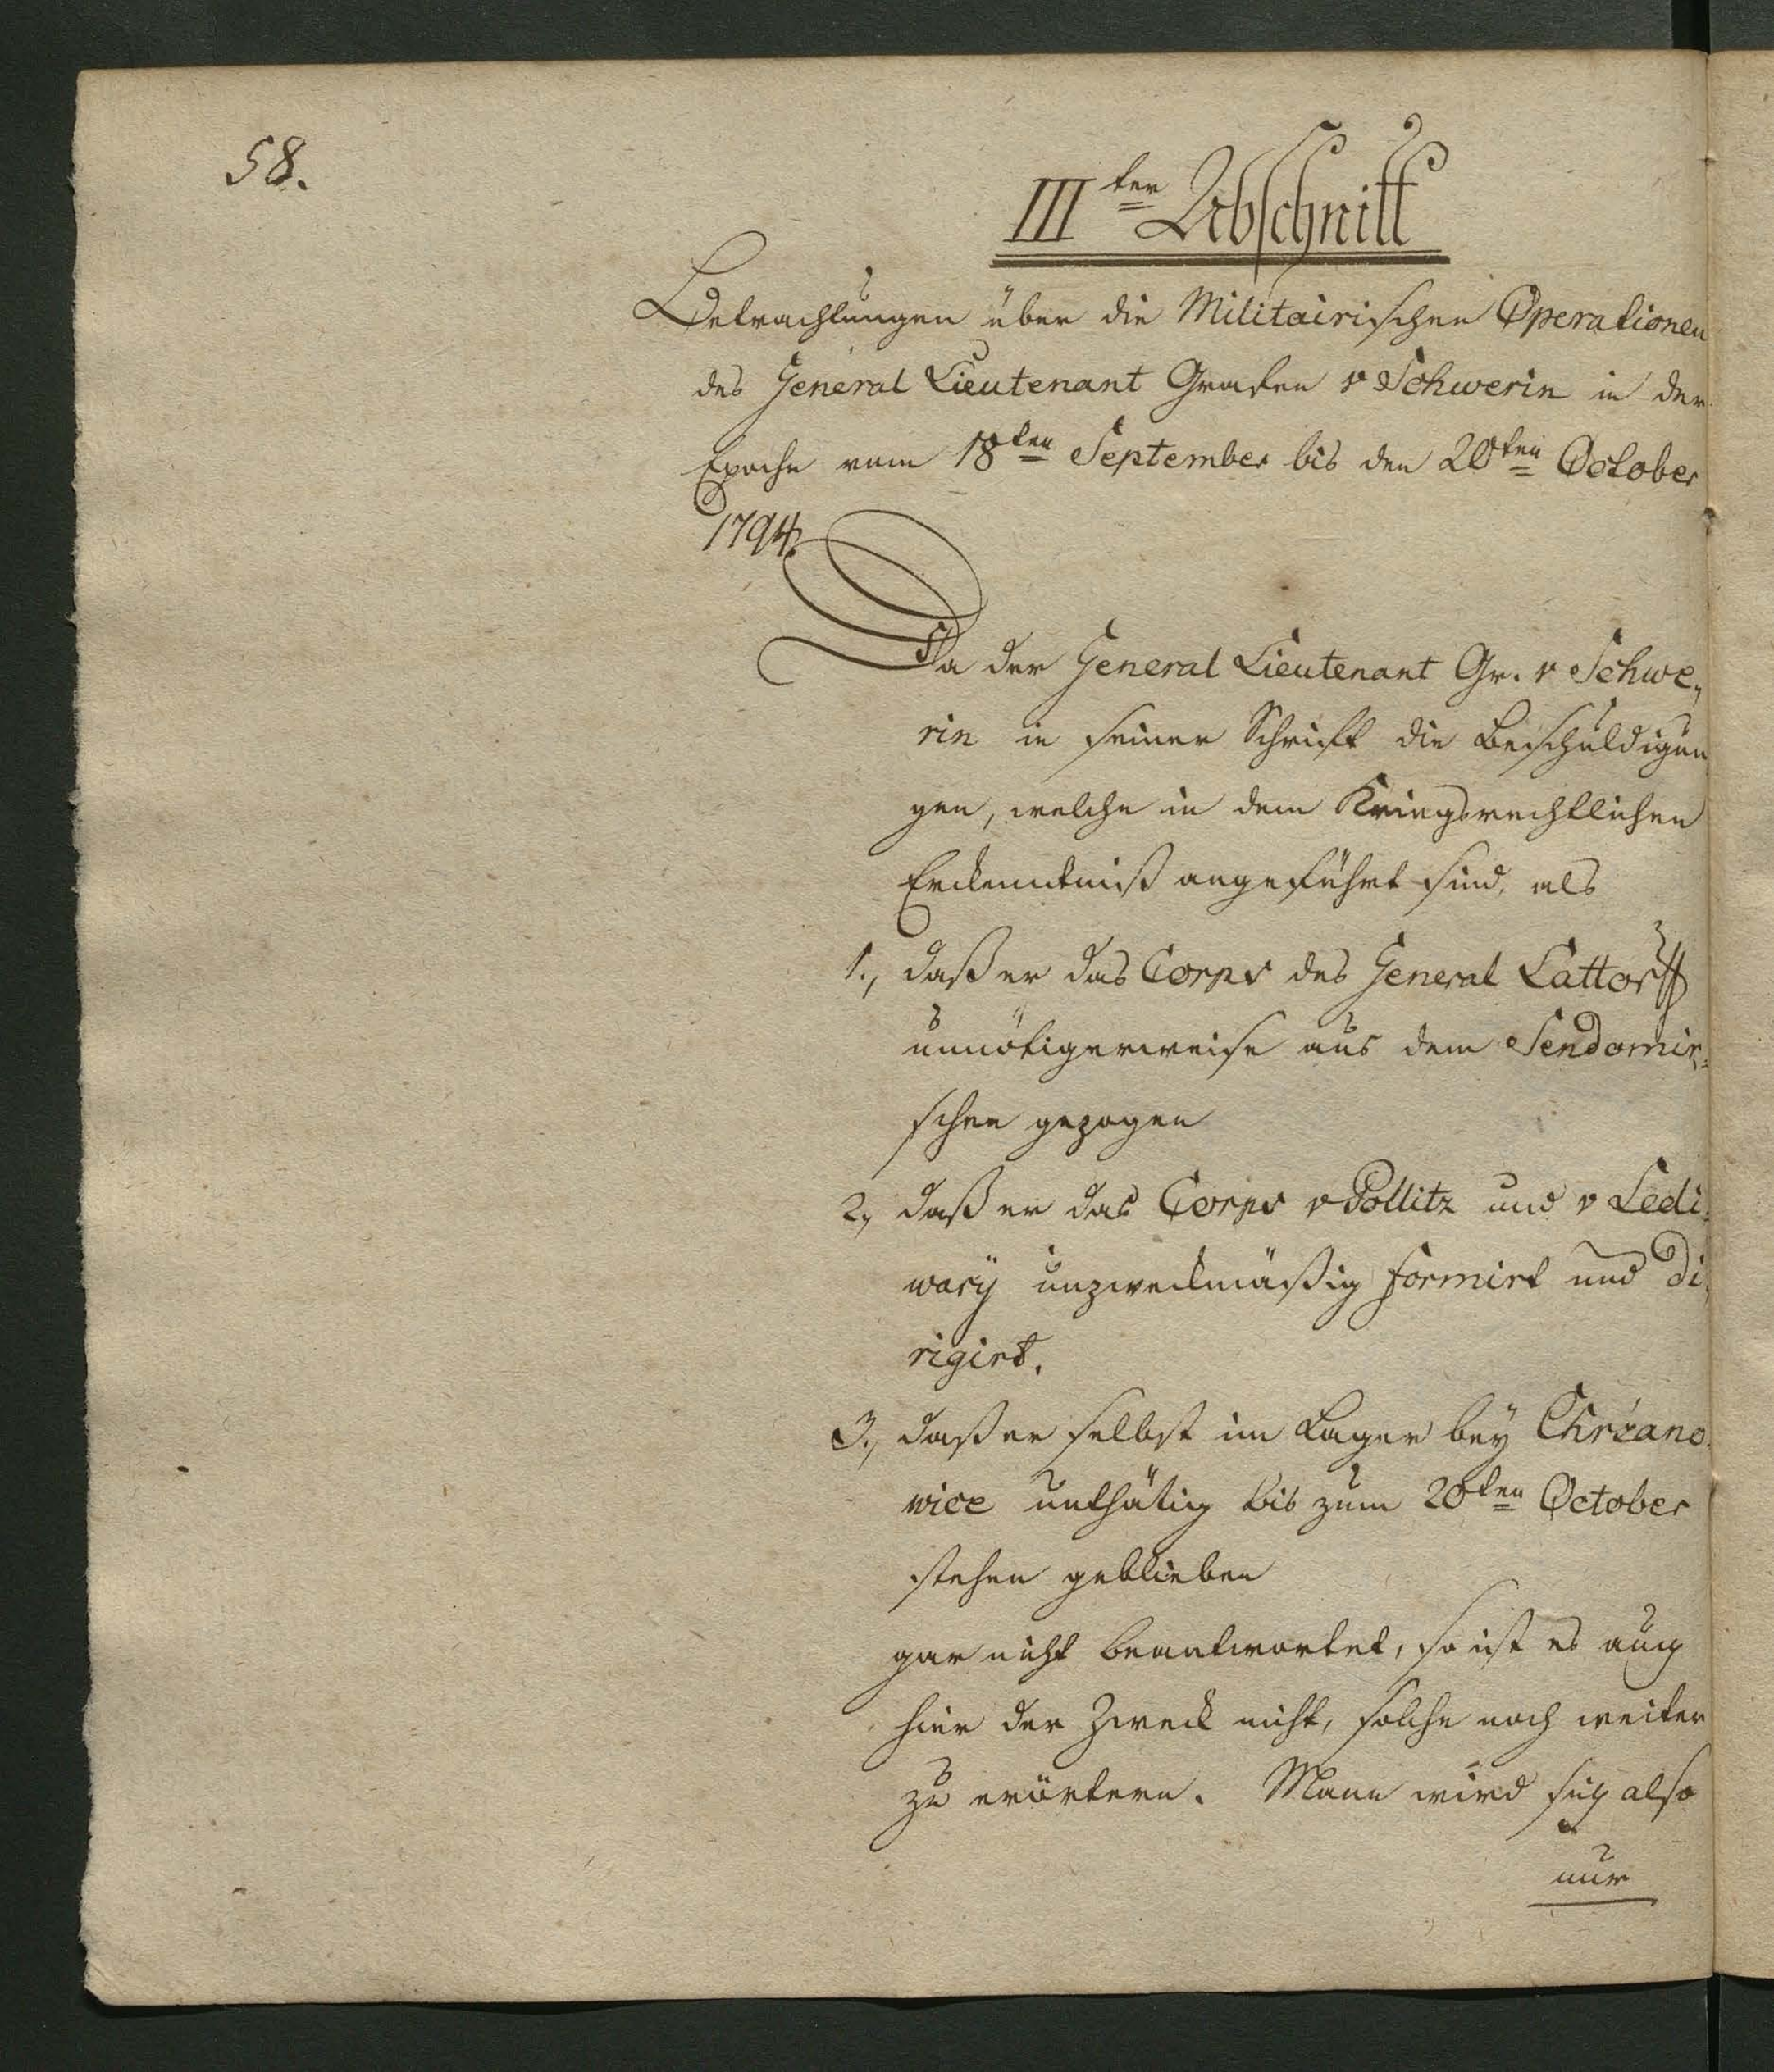 58.
III ter Abschnitt
Betrachtungen über die Militairischen Operationen
des General Lieutenant Grafen v Schwerin in der
Epoche vom 18ten September bis den 20ten October
1794.
Da der General Lieutenant Gr. v Schwe„
rin in seiner Schrift die Beschuldigun
gen, welche in dem Kriegsrechtlichen
Erkenntniß angeführt sind, als
1., daß er das Corps des General Lattorff
unnötigerweise aus dem Sendomir„
schen gezogen
2., daß er das Corps v Pollitz und v Ledi„
wary unzweckmäßig formirt und di„
rigirt.
3., daß er selbst im Lager bey Chrzano
wice unthätig bis zum 20ten October
stehen geblieben
gar nicht beantwortet, so ist es auch
hier der Zweck nicht, solche noch weiter
zu erörtern. Mann wird sich also
nur